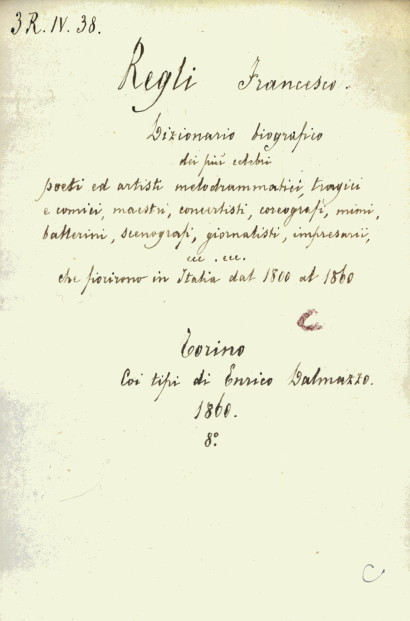 3 R. IV. 38.
Regli Francesco.
Dizionario biografico
dei più celebri
poeti ed artisti melodrammatici, tragici
e comici, maestri, concertisti, coreografi, mimi,
ballerini, scenografi, giornalisti, impresarii,
ecc. ecc.
che fiorirono in Italia dal 1800 al 1860
C
Torino
Coi tipi di Enrico Dalmazzo.
1860.
8º.
C